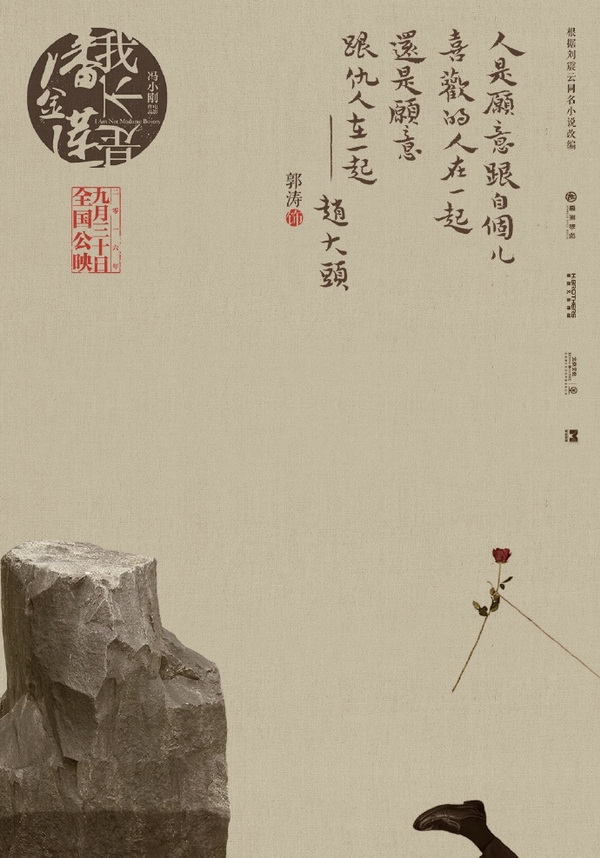 我不是
潘金莲
I Am Not Madame Bovary
冯小刚
二零一六年
九月三十日
全国公映
人是願意跟自個儿
喜歡的人在一起
還是願意
跟仇人在一起
——趙大頭
郭涛 饰
根据刘震云同名小说改编
H.BROTHERS